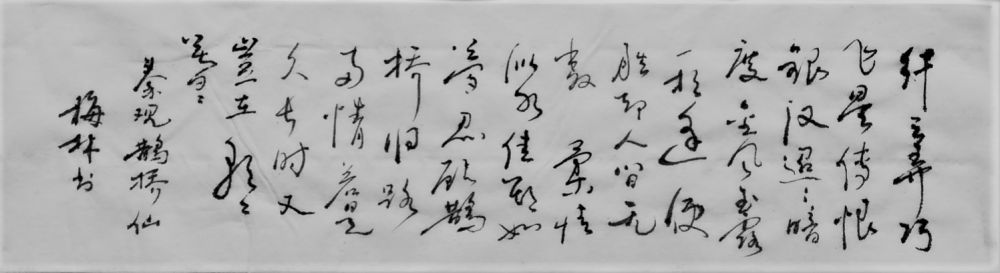 纤云弄巧
飞星傳恨
銀汉迢々暗
度金风玉露
一相逢便
胜却人间无
数 柔情
似水佳期如
梦忍顾鹊
桥归路
两情若是
久长时又
豈在朝々
暮々
秦观鹊桥仙
梅林书